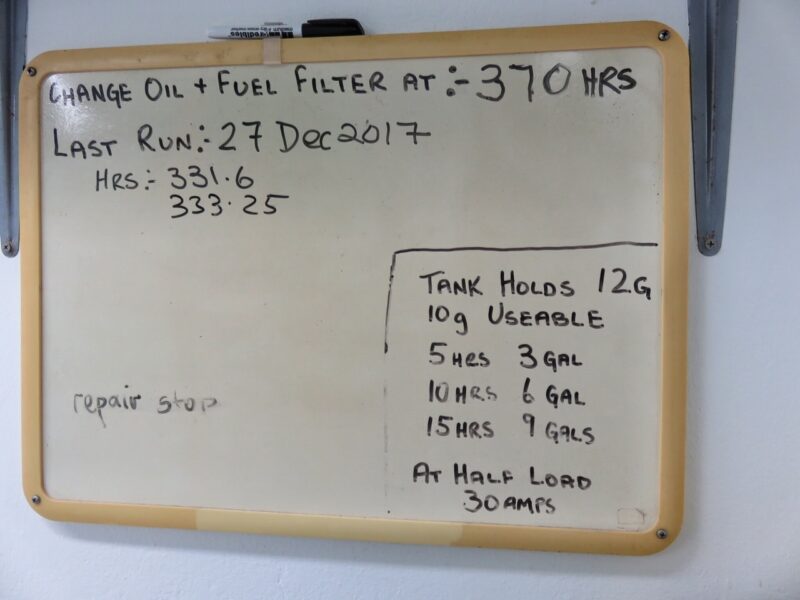 CHANGE OIL + FUEL FILTER AT :- 370 HRS
LAST RUN:- 27 Dec 2017
HRS:- 331.6
333.25
TANK HOLDS 12G
10g USEABLE
5 HRS 3 GAL
10 HRS 6 GAL
15 HRS 9 GALS
AT HALF LOAD
30 AMPS
repair stop